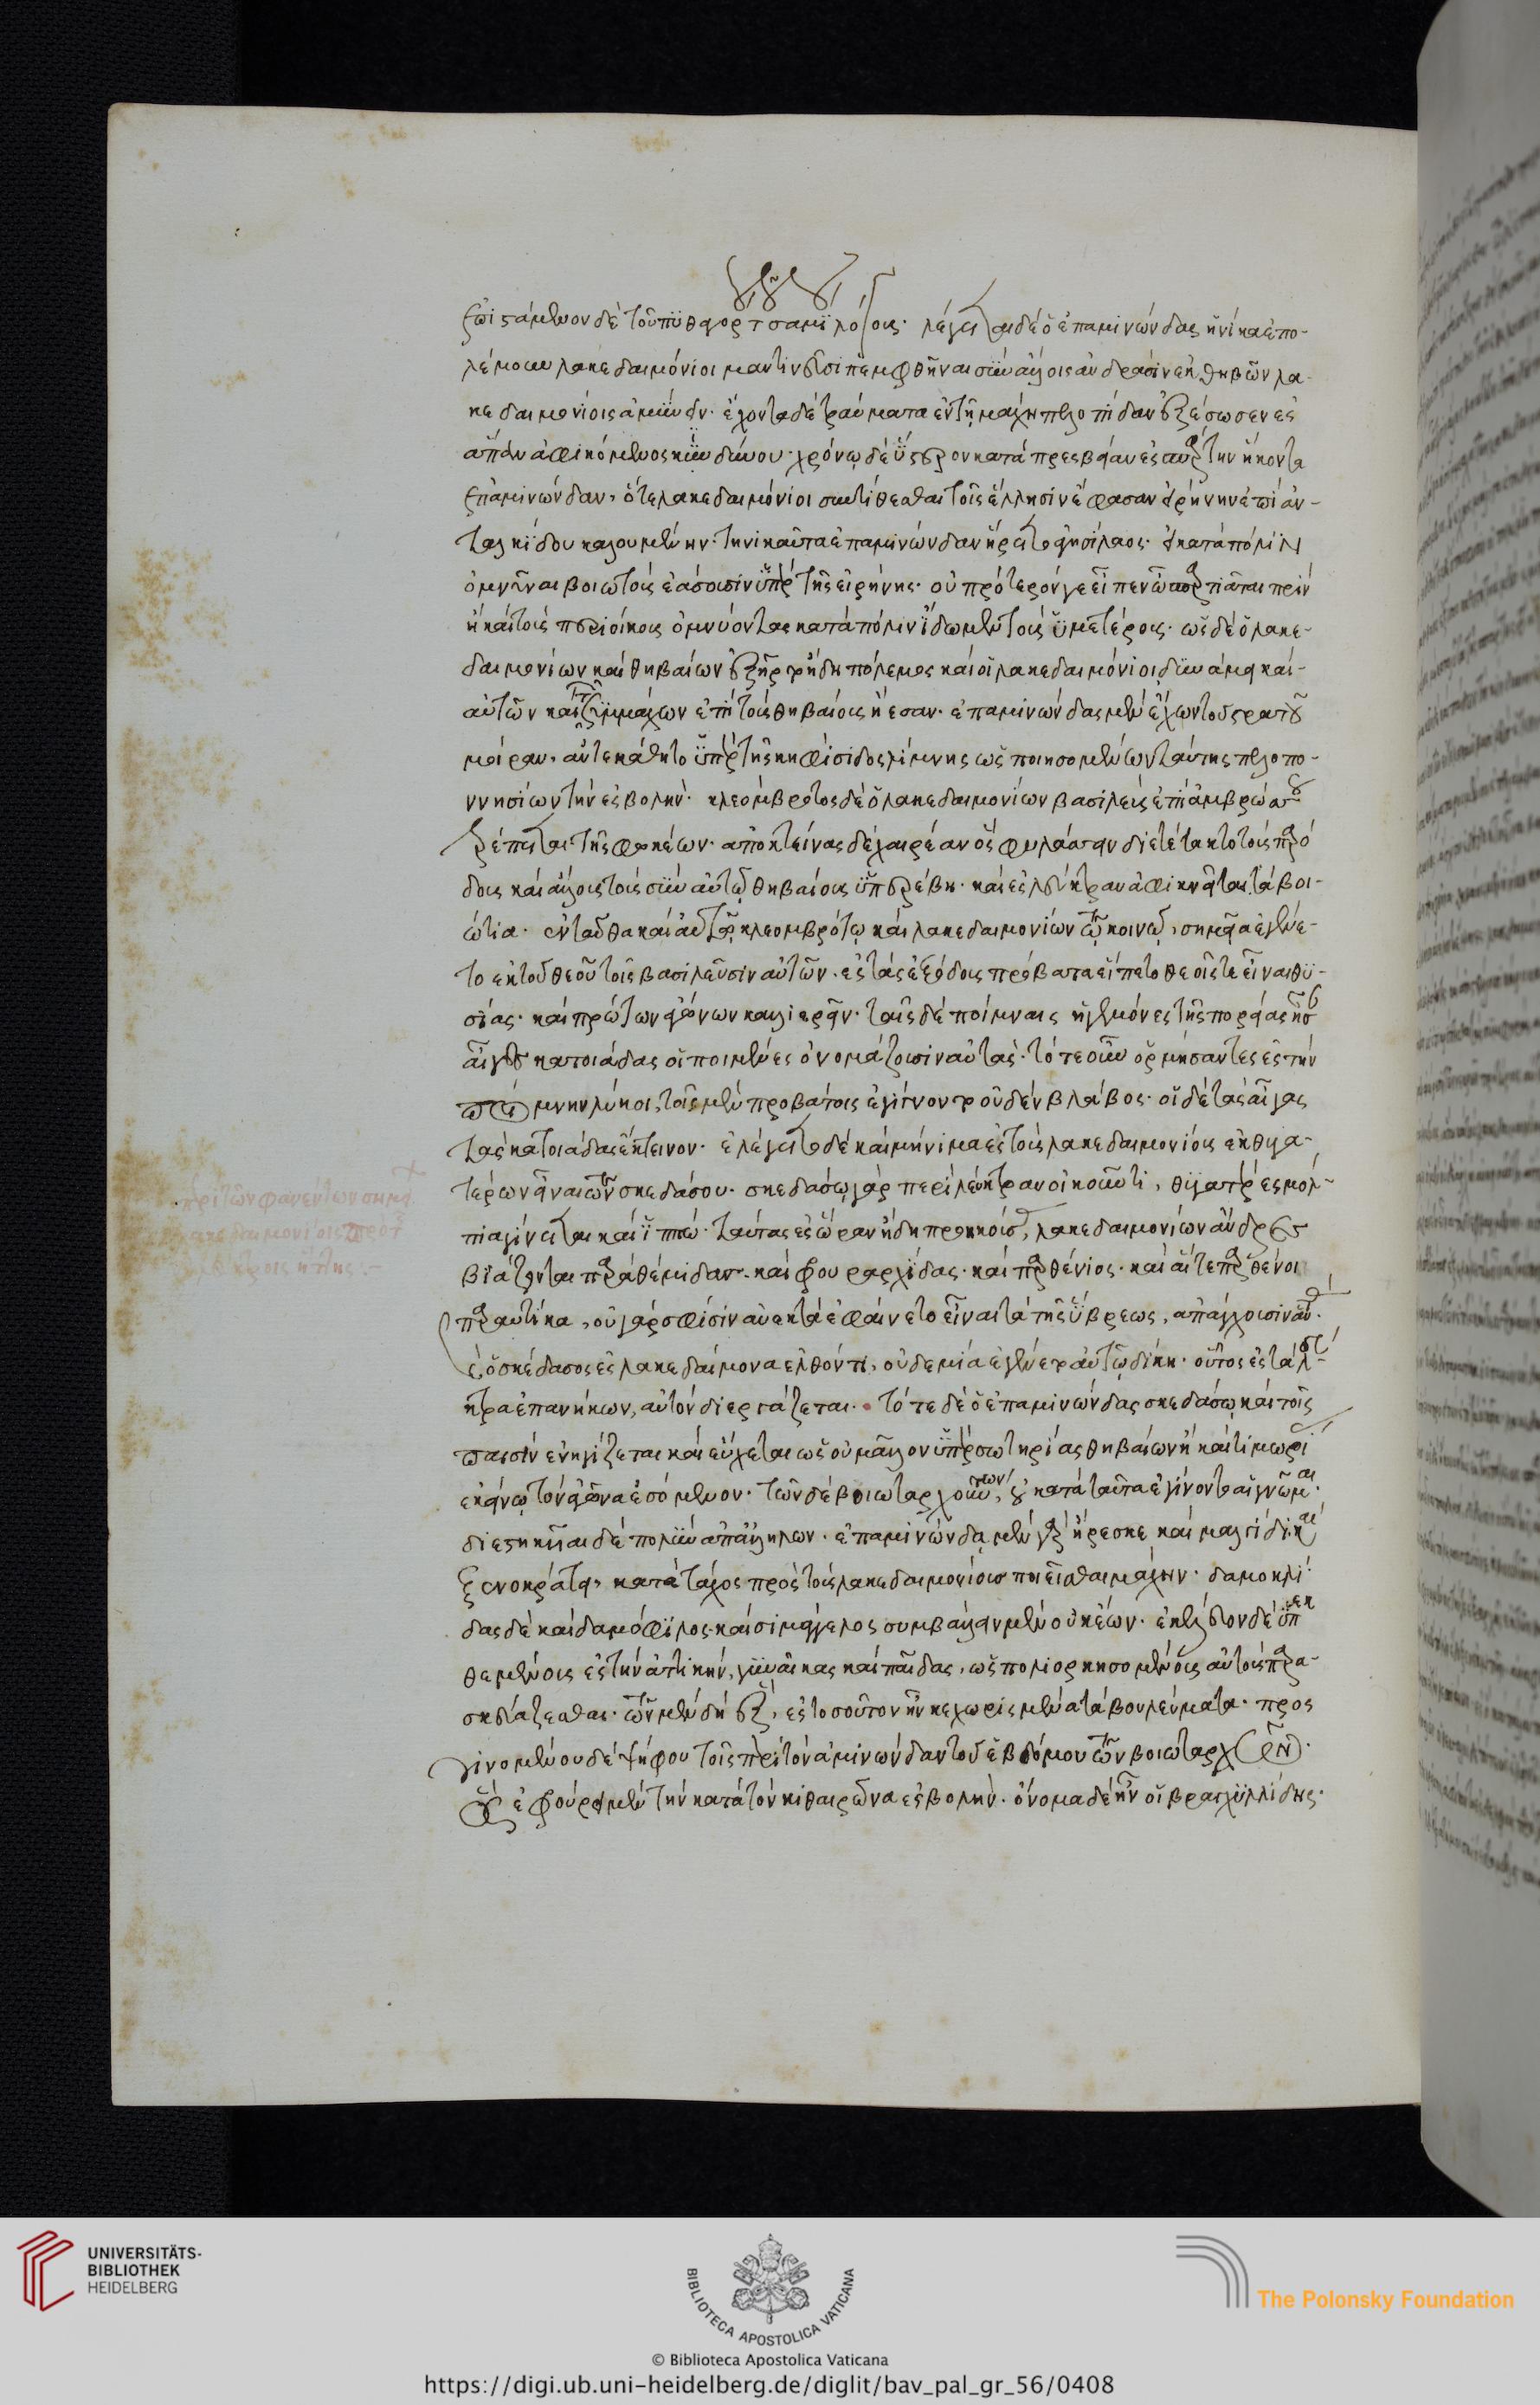 ἐπιστάμενον δὲ τοῦ πυθαγόρου τοῦ σαμίου λόγους. λέγεται δὲ ὁ ἐπαμινώνδας ἡνίκα ἐπο-
λέμουν λακεδαιμόνιοι μαντινεῦσι πεμφθῆναι σὺν ἄλλοις ἀνδράσιν ἐκ θηβῶν λα-
κεδαιμονίοις ἀμύνειν. ἔχοντα δὲ τραύματα ἐν τῇ μάχῃ πελοπίδαν ἐξέσωσεν ἐς
ἅπαν ἀφικόμενος κινδύνου. χρόνῳ δὲ ὕστερον κατὰ πρεσβείαν ἐς σπάρτην ἥκοντα
ἐπαμινώνδαν, ὅτε λακεδαιμόνιοι συντίθεσθαι τοῖς ἕλλησιν ἔφασαν εἰρήνην ἐπὶ ἀν-
ταλκίδου καλουμένην. τηνικαῦτα ἐπαμινώνδαν ἤρετο ἀγησίλαος. εἰ κατὰ πόλιν
ὀμνῦναι βοιωτοὺς ἐάσουσιν ὑπὲρ τῆς εἰρήνης. οὐ πρότερόν γε εἶπεν ὦ σπαρτιᾶται πρὶν
ἢ καὶ τοὺς περιοίκους ὀμνύοντας κατὰ πόλιν ἴδωμεν τοὺς ὑμετέρους. ὡς δὲ ὁ λακε-
δαιμονίων καὶ θηβαίων ἐξῆρτο ἤδη πόλεμος καὶ οἱ λακεδαιμόνιοι δυνάμει καὶ
αὐτῶν καὶ τῶν ξυμμάχων ἐπὶ τοὺς θηβαίους ἤεσαν. ἐπαμινώνδας μὲν ἔχων τοῦ στρατοῦ
μοῖραν, ἀντεκάθητο ὑπὲρ τῆς κηφισίδος λίμνης ὡς ποιησομένων ταύτης πελοπο-
ννησίων τὴν ἐσβολήν. κλεόμβροτος δὲ ὁ λακεδαιμονίων βασιλεὺς ἐπὶ ἀμβρώσσου
τρέπεται τῆς φωκέων. ἀποκτείνας δὲ χαιρέαν ὃς φυλάσσειν διετέτακτο τοὺς παρό
δους καὶ ἄλλους τοὺς σὺν αὐτῷ θηβαίους ὑπερέβη. καὶ ἐς λεῦκτραν ἀφικνεῖται τὰ βοι-
ώτια. ἐνταῦθα καὶ αὐτῷ κλεομβρότῳ καὶ λακεδαιμονίων τῷ κοινῷ, σημεῖα ἐγένε-
το ἐκ τοῦ θεοῦ τοῖς βασιλεῦσιν αὐτῶν. ἐς τὰς ἐξόδους πρόβατα εἵπετο θεοῖς τε εἶναι θυ-
σίας. καὶ πρὸ τῶν ἀγώνων καλλιερεῖν. ταῖς δὲ ποίμναις ἡγεμόνες τῆς πορείας ἦσαν
αἶγες κατοιάδας οἱ ποιμένες ὀνομάζουσιν αὐτάς. τότε οὖν ὁρμήσαντες ἐς τὴν
ποίμνην λύκοι, τοῖς μὲν προβάτοις ἐγίνοντο οὐδὲν βλάβος. οἱ δὲ τὰς αἶγας
τὰς κατοιάδας ἔκτεινον. ἐλέγετο δὲ καὶ μήνιμα ἐς τοὺς λακεδαιμονίους ἐκ θυγα-
τέρων εἶναι τῶν σκεδάσου. σκεδάσῳ γὰρ περὶ λεῦκτραν οἰκοῦντι, θυγατέρες μολ-
πία γίνεται καὶ ἱππώ. ταύτας ἐς ὥραν ἤδη προηκούσας, λακεδαιμονίων ἄνδρες
βιάζονται παραθέμιδαν. καὶ φουραρχίδας. καὶ παρθένιος. καὶ αἵ τε παρθένοι
παραυτίκα, οὐ γάρ σφισιν ἀνεκτὰ ἐφαίνετο εἶναι τὰ τῆς ὕβρεως, ἀπάγχουσιν αὑτάς.
ὁ σκέδασος ἐς λακεδαίμονα ἐλθόντι, οὐδεμία ἐγένετο αὐτῷ δίκη. οὕτως ἐς τὰ λεῦ-
κτρα ἐπανήκων, αὑτὸν διεργάζεται. τότε δὲ ὁ ἐπαμινώνδας σκεδάσῳ καὶ τοῖς
παισὶν ἐνηγίζεται καὶ εὔχεται ὡς οὐ μᾶλλον ὑπὲρ σωτηρίας θηβαίων ἢ καὶ τιμωρίαν
ἐκείνῳ τὸν ἀγῶνα ἐσόμενον. τῶν δὲ βοιωταρχούντων, οὐ κατὰ ταὐτὰ ἐγίνοντο αἱ γνῶμαι.
διεστηκυῖαι δὲ πολὺ ἀπ' ἀλλήλων. ἐπαμινώνδᾳ μὲν γὰρ ἤρεσκε καὶ μαλγίδι καὶ
ξενοκράτει, κατὰ τάχος πρὸς τοὺς λακεδαιμονίους ποιεῖσθαι μάχην. δαμοκλί
δας δὲ καὶ δαμόφιλος καὶ σιμάγγελος συμβάλλειν μὲν οὐκ ἔων. ἐκέλευον δὲ ὑπεκ
θεμένους ἐς τὴν ἀττικήν, γυναῖκας καὶ παῖδας, ὡς πολιορκησομένους αὐτοὺς παρα-
σκευάζεσθαι. τῶν μὲν δὴ ἓξ, ἐς τοσοῦτον ἦν κεχωρισμένα τὰ βουλεύματα. προς
γινομένου δὲ ψήφου τοῖς περὶ τὸν ἀμινώνδαν τοῦ ἑβδόμου τῶν βοιωταρχῶν.
ὃς ἐφρούρει μὲν τὴν κατὰ τὸν κιθαιρῶνα ἐσβολήν. ὄνομα δὲ ἦν οἱ βραχυλλίδης.
UNIVERSITÄTS-
BIBLIOTHEK
HEIDELBERG
BIBLIOTECA APOSTOLICA VATICANA
The Polonsky Foundation
© Biblioteca Apostolica Vaticana
https://digi.ub.uni-heidelberg.de/diglit/bav_pal_gr_56/0408